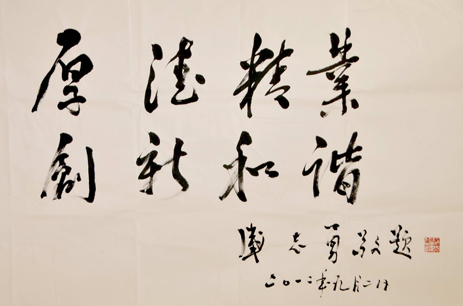 厚德精業
創新和諧
盛志勇敬题
二〇一二年九月二日